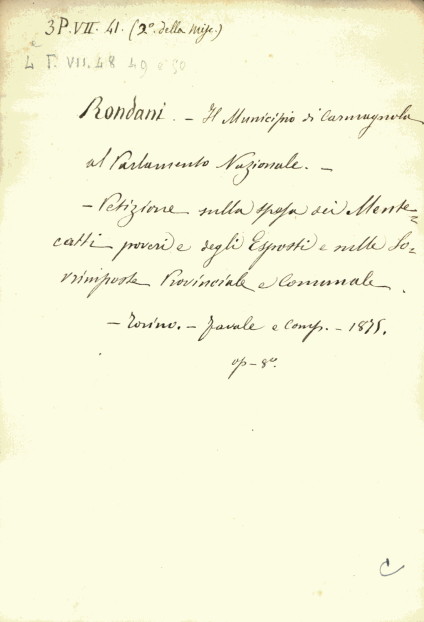 3 P. VII. 41. (2º. della Misc.)
4 P. VII. 48 49 e 50
Rondani. - Il Municipio di Carmagnola
al Parlamento Nazionale. -
- Petizione sulla spesa dei Mente=
catti poveri e degli Esposti e sulle So=
vrimposte Provinciale e Comunale.
- Torino. - Favale e Comp. - 1875.
op - 8º.
C